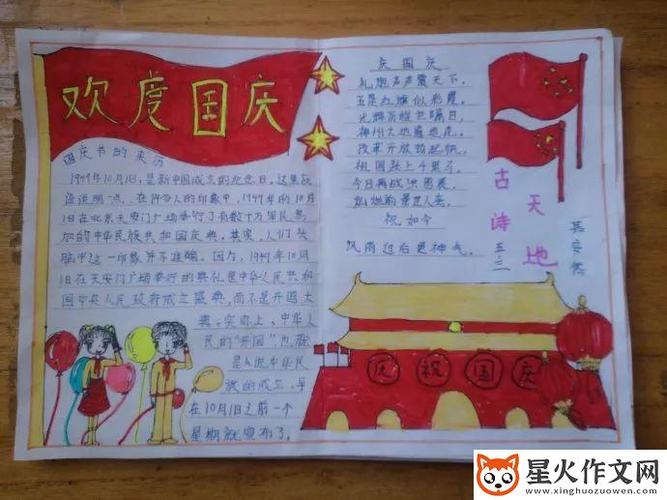 欢度国庆
国庆节的来历
1949年10月1日,是新中国成立的纪念日。这里应
该说明一点,在许多人的印象中,1949年的10月
1日在北京天安门广场举行了有数十万军民参
加的中华民族共和国庆典。其实,人们头
脑中这一印象并不准确。因为,1949年10月
1日在天安门广场举行的典礼是中华人民共和
国中央人民政府成立盛典,而不是开国大
典。实际上,中华人
民的"开国"也就
是么说中华民
族的成立,早
在10月1日之前一个
星期就宣布了。
庆国庆
礼炮声声震天下,
五星红旗似彩霞。
光辉历程
神州大地遍地花。
改革开放
祖国跃上千里马。
今日再战洪图展,
祝如今
风雨过后更神气。
古诗
天地
五.二
庆祝国庆
星火作文网
www.xinghuozuowen.com